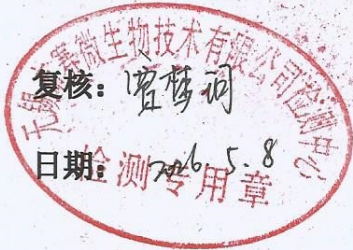 赛微生物技术有限公司检测中心
复核：
日期： 5.8
检测专用章